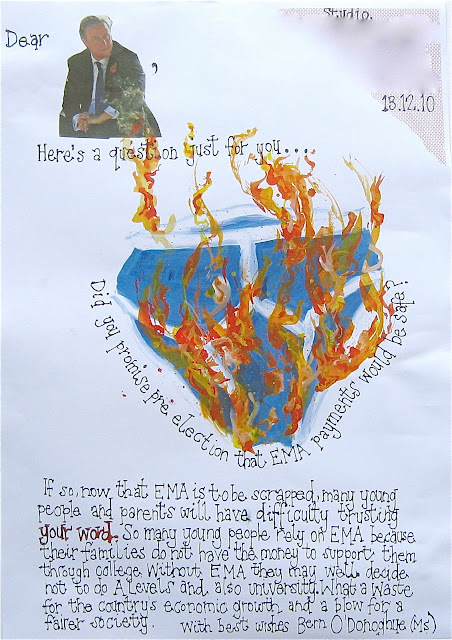 Studio.
Dear ,
18.12.10
Here's a question just for you....
Did you promise pre election that EMA payments would be safe?
If so, now that EMA is to be scrapped, many young
people and parents will have difficulty trusting
your word. So many young people rely on EMA because
their families do not have the money to support them
through college. Without EMA they may well decide
not to do A Levels and also university. What a waste
for the countrys economic growth and a blow for a
fairer society. With best wishes Bern O'Donoghue (Ms)